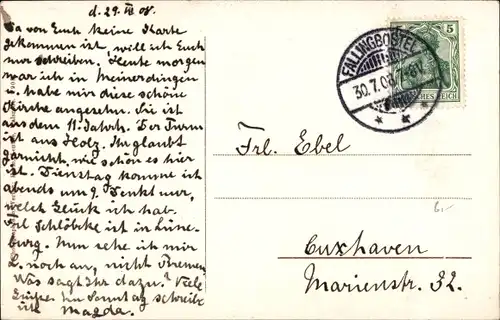 d. 29. VII 08.
Da von Euch keine Karte
gekommen ist, will ich Euch
nur schreiben. Heute morgen
war ich in Meinerdingen
u. habe mir diese schöne
Kirche angesehn. Sie ist
aus dem 11. Jahrh. Der Turm
ist aus Holz. Ihr glaubt
garnicht, wie schön es hier
ist. Dienstag komme ich
abends um 9. Denkt nur,
welch Glück ich hab.
Frl Schlöbcke ist in Lüne-
burg. Nun sehe ich mir
L. noch an, nicht Bremen.
Was sagt Ihr dazu? Viele
Grüsse. Im Sonntag schreibt
Magda.
FALLINGBOSTEL
30.7.08. 7-8V.
5
DEUTSCHES REICH
Frl. Ebel
Cuxhaven
Marienstr. 32.